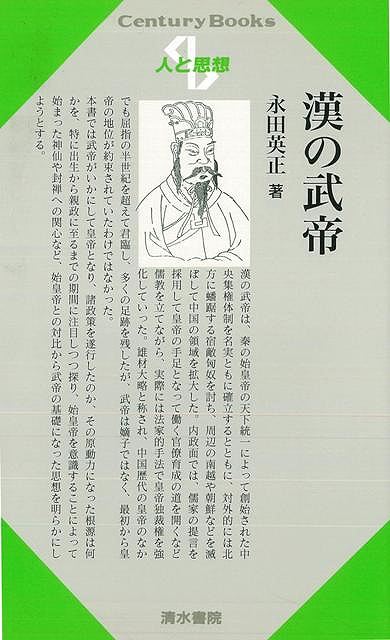 Century Books
人と思想
漢の武帝
永田英正 著
漢の武帝は、秦の始皇帝の天下統一によって創始された中
央集権体制を名実ともに確立するとともに、対外的には北
方に蟠踞する宿敵匈奴を討ち、周辺の南越や朝鮮などを滅
ぼして中国の領域を拡大した。内政面では、儒家の提言を
採用して皇帝の手足となって働く官僚育成の道を開くなど
儒教を立てながら、実際には法家的手法で皇帝独裁権を強
化していった。雄材大略と称され、中国歴代の皇帝のなか
でも屈指の半世紀を超えて君臨し、多くの足跡を残したが、武帝は嫡子ではなく、最初から皇
帝の地位が約束されていたわけではなかった。
本書では武帝がいかにして皇帝となり、諸政策を遂行したのか、その原動力になった根源は何
かを、特に出生から親政に至るまでの期間に注目しつつ探り、始皇帝を意識することによって
始まった神仙や封禅への関心など、始皇帝との対比から武帝の基礎になった思想を明らかにし
ようとする。
清水書院